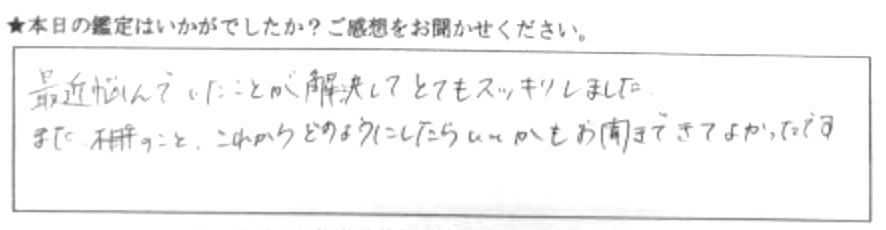 ★本日の鑑定はいかがでしたか？ご感想をお聞かせください。
最近悩んでいたことが解決してとてもスッキリしました。
また、相性のこと、これからどのようにしたらいいかもお聞きできてよかったです